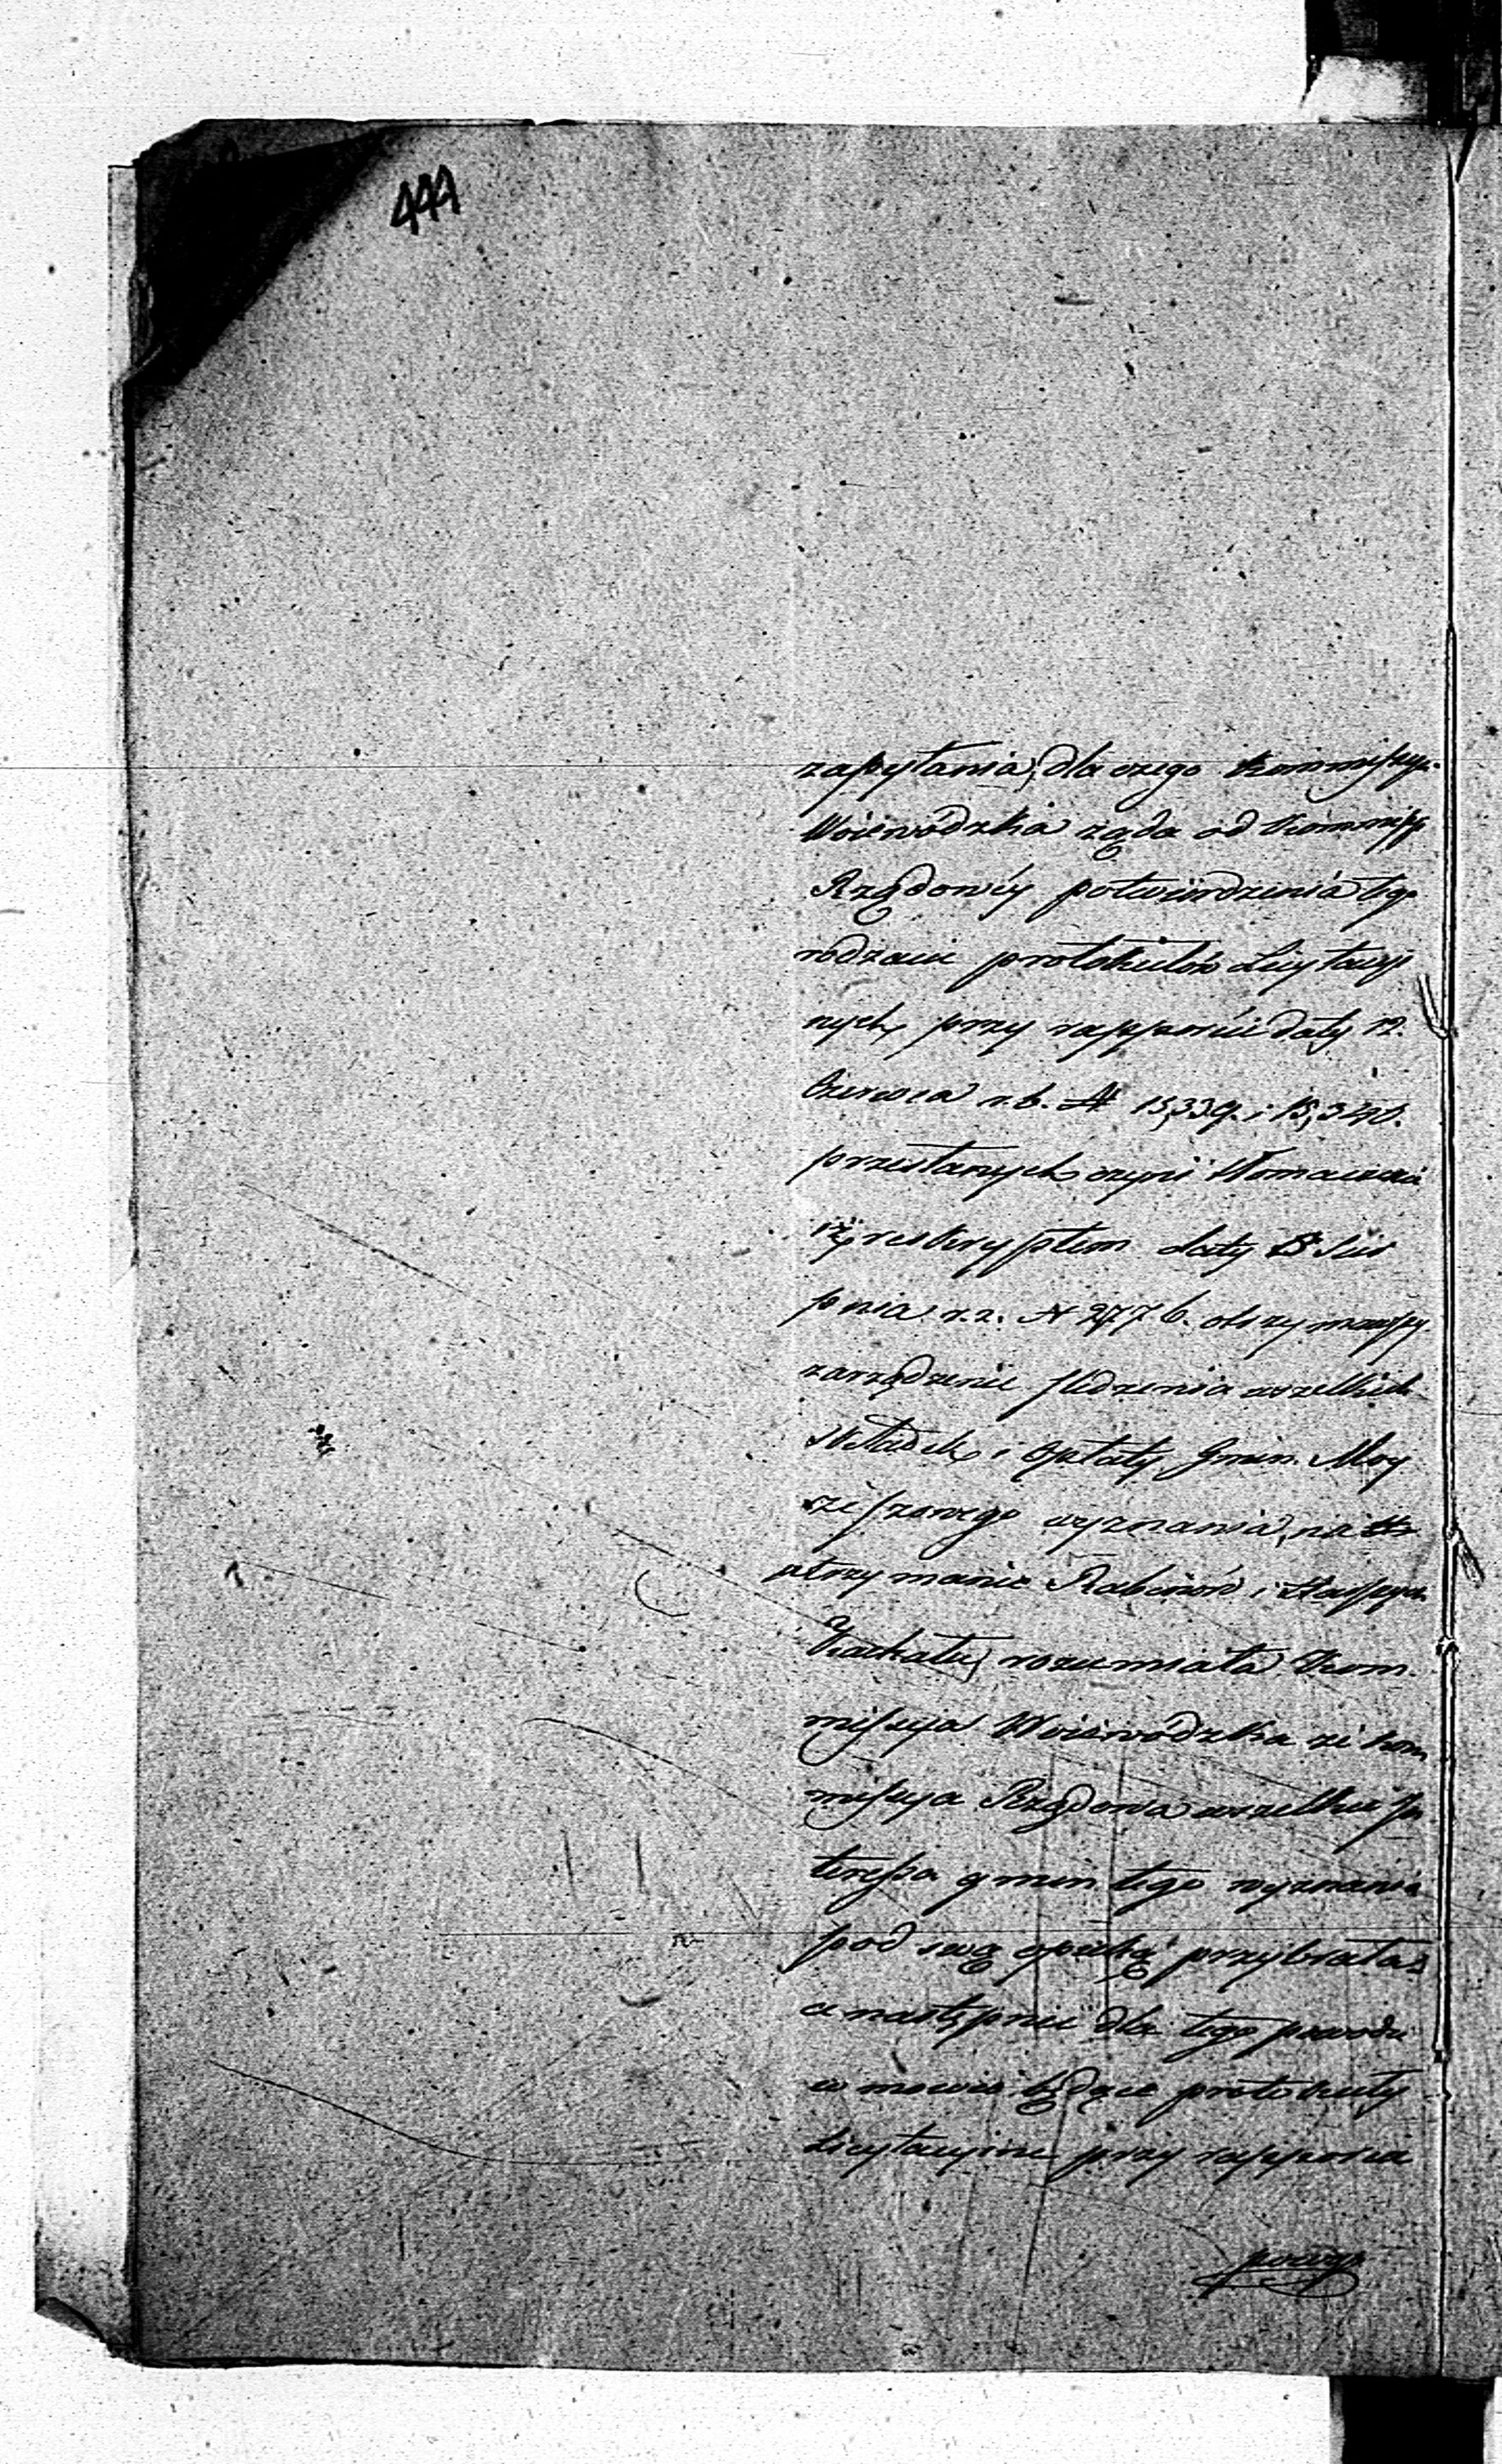 444
zapytania, dla czego Kommissya
Woiewódzka żąda od Kommiss
Rządowéy potwierdzenia tego
rodzaiu protokułów Licytacyi
nych, przy rapporcie daty 12.
Czerwca r.b. N 15,339. i 15,340.
przesłanych czyni tłomaczenia
iż reskryptem daty 18 Sier
pnia r.z. N 2776. otrzymawszy
zarządzenie śledzenia wszelkich
składek i opłaty Gmin. Moy
żeszowego wyznania, na
utrzymanie Rabinów i
Kachału, rozumiała Kom
missyia Woiewódzka że Kom
missyia Rządowa wszelkie In
teressa gmin tego wyznania
pod swą opiekę przybrała
a następnie dla tego powodu
w mowie będące protokuły
Licytacyine przy rapporcie
powyż